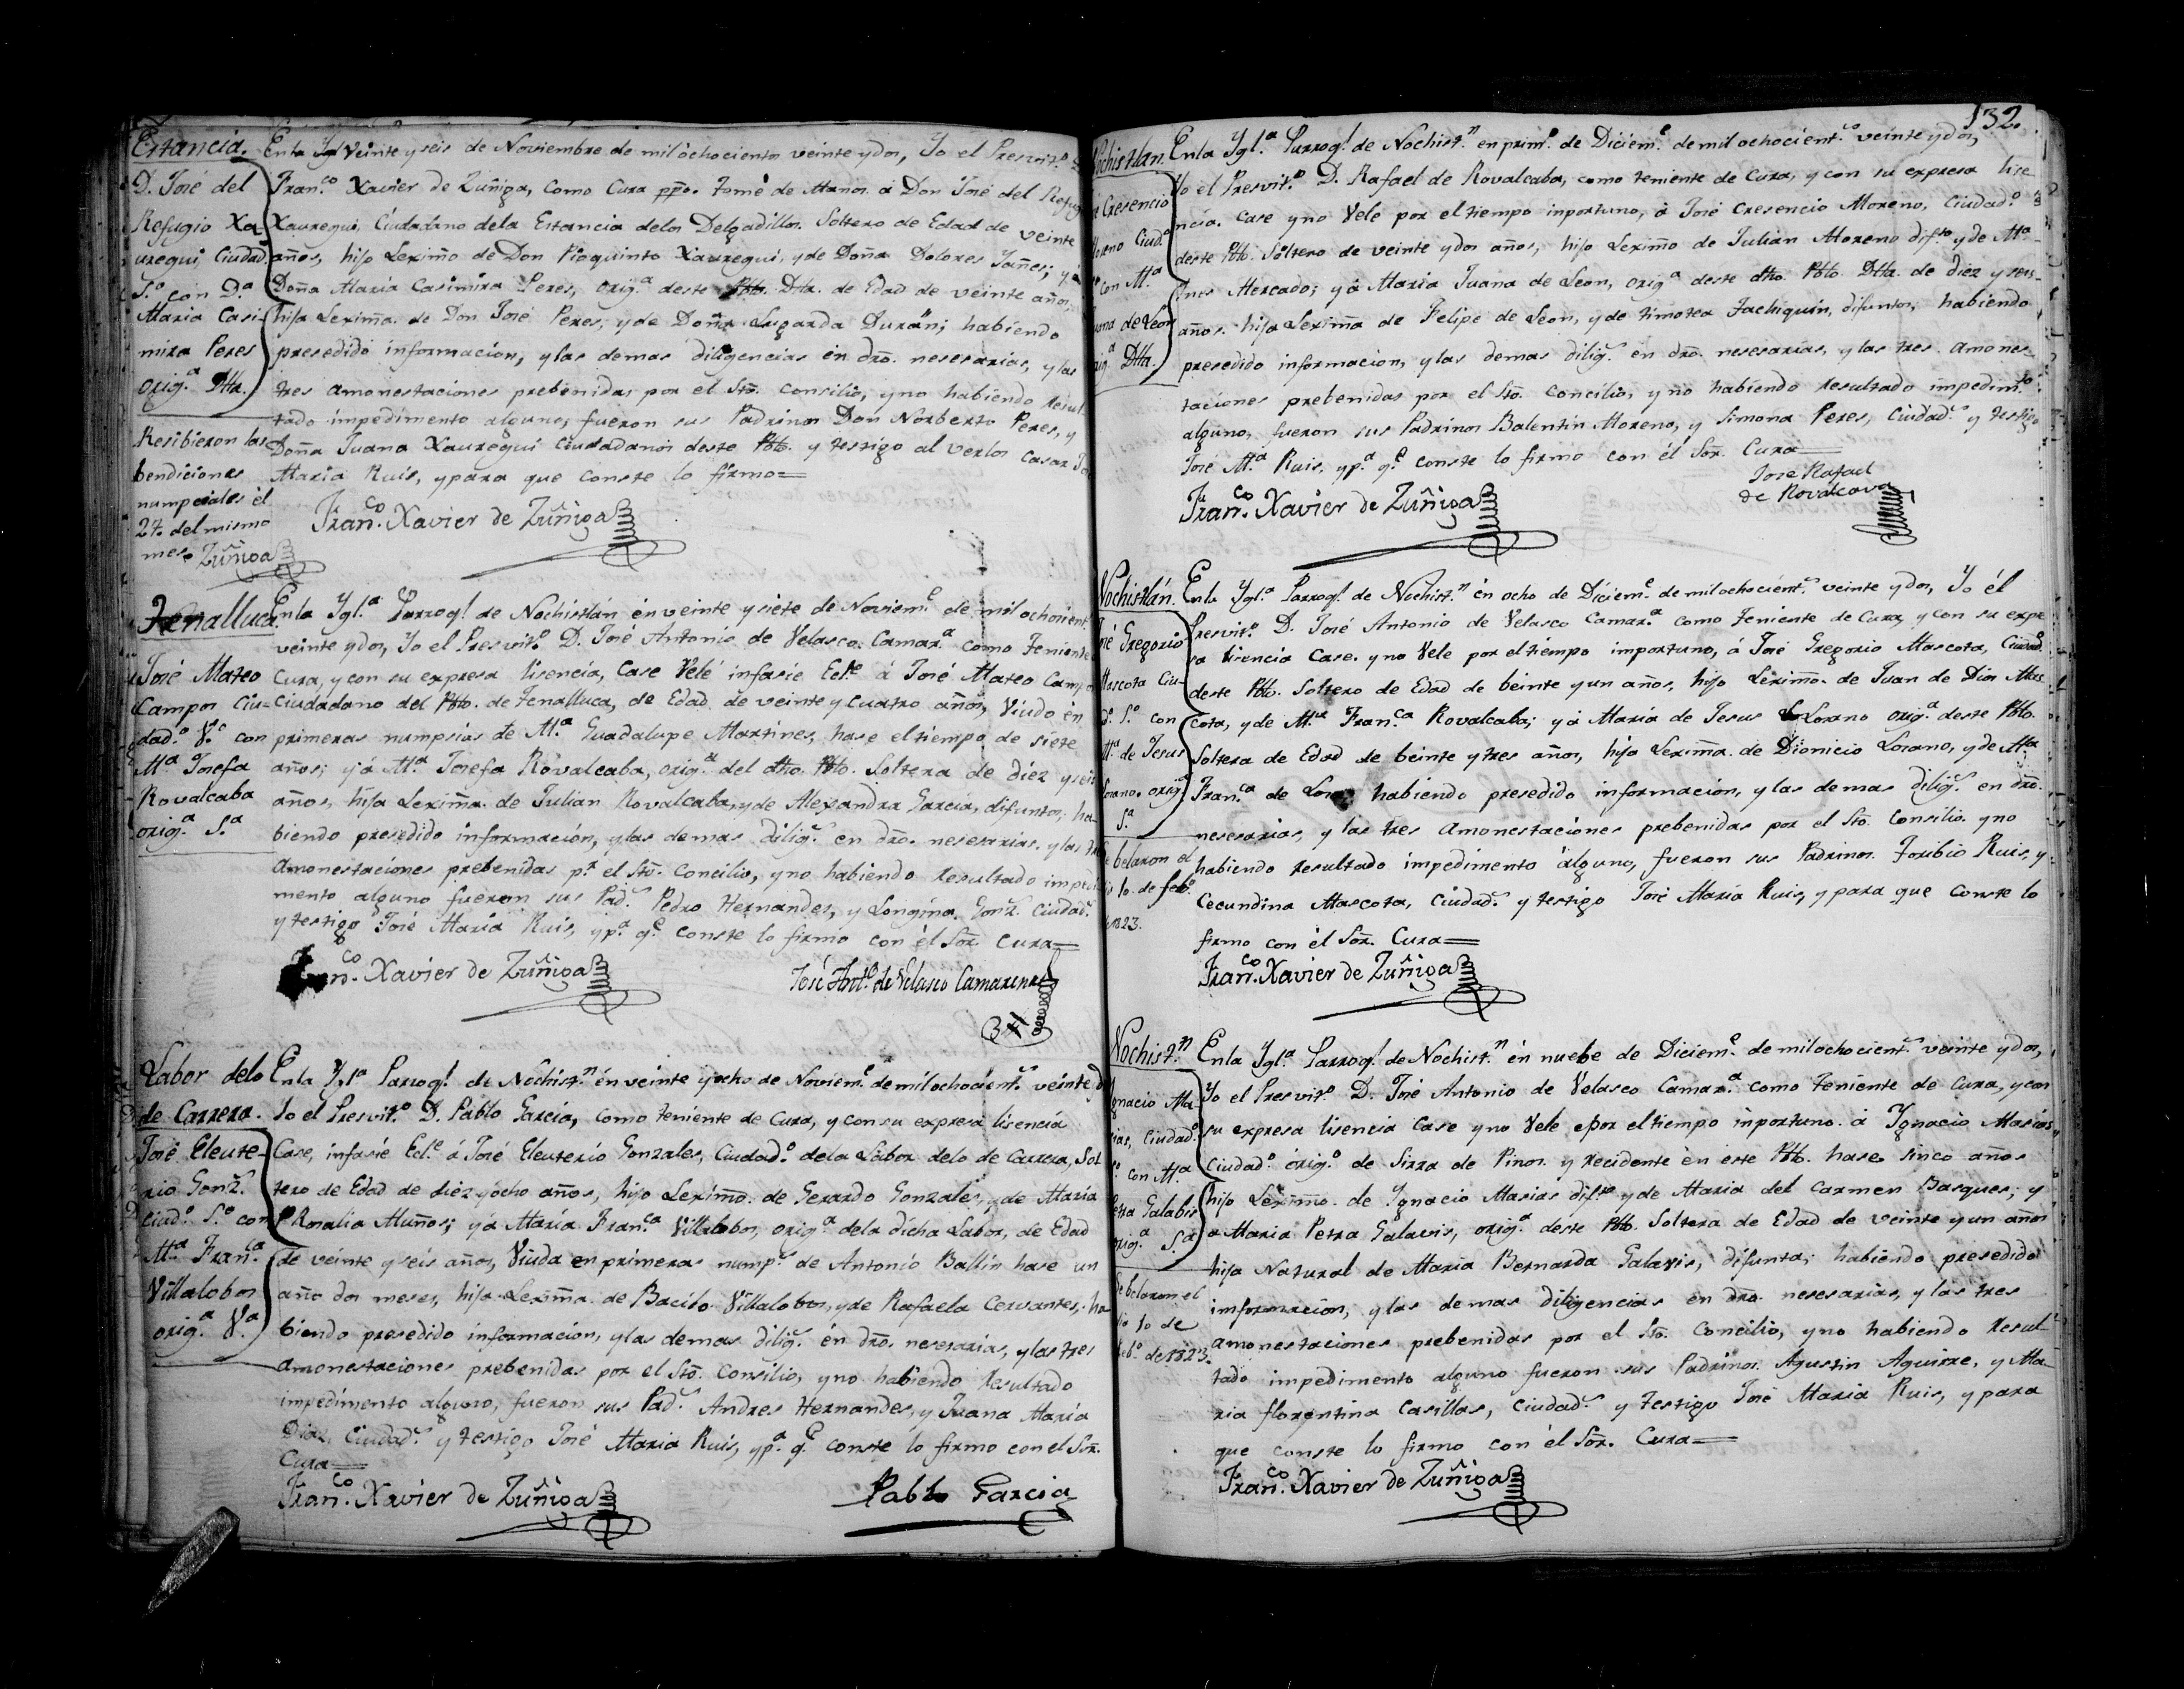 Estancia.
D. José del
Refugio Xa-
uregui, Ciudad.
S.º con D.ª
Maria Casi-
mira Peres
orig.ª Dtta.
Resibieron las
bendiciones
numpciales él
27. del mismo
mes. Zúñiga
En la Ygl Veinte y seis de Noviembre de mil ochocientos veinte y dos, Yo el Presvit.º D.
Fran.co Xavier de Zuñiga, como Cura pp̃o. tomé de Manos á Don José del Refug
Xauregui, Ciudadano dela Estancia delos Delgadillos. Soltero de Edad de veinte
años, hijo Lexim̃o de Don Pioquinto Xauregui, y de Doña Dolores Yañes; y á
Doña Maria Casimira Peres, orig.ª deste Pbto. Dtta. de Edad de veinte años,
hija Lexim̃a. de Don José Peres, y de Doña Lugarda Durán; habiendo
presedido informacion, y las demas diligencias en dr̃o. nesesarias, y las
tres amonestaciones prebenidas por el Stõ. Consilio, y no habiendo resul-
tado impedimento alguno, fueron sus Padrinos Don Norberto Peres, y
Doña Juana Xauregui Ciudadanos deste Pbto. y testigo al verlos casar Jo
Maria Ruis, y para que conste lo firmo=
Fran.co Xavier de Zuñiga
Tenalluca.
José Mateo
Campos Ciu-
dad.º V.º con
M.ª Josefa
Rovalcaba
orig.ª S.ª
Enla Ygl.ª Parroq.l de Nochistlán en veinte y siete de Noviem.e de mil ochocient
veinte y dos, Yo el Presvit.º D. José Antonio de Velasco Camar.ª como Teniente
Cura, y con su expresa lisencia, Case Velé infasie Ecl.e á José Mateo Campos
Ciudadano del Pbto. de Tenalluca, de Edad de veinte y cuatro años, Viudo en
primeras numpsias de M.ª Guadalupe Martines, hase el tiempo de siete
años; y á M.ª Josefa Rovalcaba, orig.ª del dho. Pbto. Soltera de diez y seis
años, hija Lexim̃a. de Julian Rovalcaba, y de Alexandra Garcia, difuntos, ha-
biendo presedido información, y las demas dilig.s en dr̃o. nesesarias. y las tr
amonestaciones prebenidas p.r el Stõ. Concilio, y no habiendo resultado impedi
mento alguno fueron sus Pad.s Pedro Hernandes, y Longina Gonz.s Ciudad.s
y testigo José Maria Ruis, y p.ª q.e conste lo firmo con él Sor. Cura=
Fran.co Xavier de Zuñiga
José Ant.º de Velasco Camarena
Labor delo
de Carrera.
José Eleute-
rio Gonz.s
Ciud.º S.º con
M.ª Fran.ca
Villalobos
orig.ª V.ª
Enla Ygl.ª Parroq.l de Nochist.n en veinte y ocho de Noviem.e de mil ochocient.s veinte y d
Yo el Presvit.º D. Pablo Garcia, como Teniente de Cura, y con su expresa lisencia
Case, infasié Ecl.e á José Eleuterio Gonzales, Ciudad.º dela Labor delo de Carrera, Sol-
tero de Edad de diez y ocho años, hijo Lexim̃o. de Gerardo Gonzales, y de Maria
Rosalia Muños; y á María Fran.ca Villalobos, orig.ª dela dicha Labor, de Edad
de veinte y seis años, Viuda en primeras nump.s de Antonio Ballin hase un
año dos meses, hija Lexim̃a. de Bacilo Villalobos, y de Rafaela Cervantes; ha-
biendo presedido informacion, y las demas dilig.s én dr̃o. nesesarias, y las tres
amonestaciones prebenidas por el Stõ. Consilio, y no habiendo resultado
impedimento alguno, fueron sus Pad.s Andres Hernandes, y Juana María
Dias, Ciudad.s y testigo José Maria Ruis, y p.ª q.e conste lo firmo con el Sor.
Cura=
Fran.co Xavier de Zuñiga
Pablo Garcia
132.
Nochistlan.
é Cresencio
Moreno Ciud.º
con M.ª
uana de Leon
rig.ª Dtta.
Enla Ygl.ª Parroq.l de Nochist.n en prim.º de Diciem.e de mil ochocient.s veinte y dos,
Yo el Presvit.º D. Rafael de Rovalcaba, como teniente de Cura, y con su expresa lise
ncia. Case y no Vele por el tiempo inportuno, á José Cresencio Moreno, Ciudad.º
deste Pbto. Soltero de veinte y dos años, hijo Lexim̃o de Julian Moreno dif.to y de M.ª
Ines Mercado; y á Maria Juana de Leon, orig.ª deste dho. Pbto. Dtta. de diez y seis
años. hija Lexim̃a de Felipe de Leon, y de Timotea Jachiquin, difuntos, habiendo
presedido informacion, y las demas dilig.s en dr̃o. nesesarias, y las tres amones-
taciones prebenidas por el Stõ. Concilio, y no habiendo resultado impedim.to
alguno, fueron sus Padrinos Balentin Moreno, y Simona Peres, Ciudad.s y testigo
José M.ª Ruis, y p.ª q.e conste lo firmo con él Sor. Cura=
Fran.co Xavier de Zuñiga
Jose Rafael
de Rovalcava
Nochistlán.
José Gregorio
Mascota Ciu-
d.º S.º con
M.ª de Jesus
Losano. orig.ª
S.ª
e belaron él
10. de feb.º
1823.
Enla Ygl.ª Parroq.l de Nochist.n én ocho de Diciem.e de mil ochocient.s veinte y dos, Yo él
Presvit.º D. José Antonio de Velasco Camar.ª como Teniente de Cura, y con su expe
sa lisencia Case. y no Vele por el tiempo importuno, á José Gregorio Mascota, Ciudad.º
deste Pbto. Soltero de Edad de beinte y un años, hijo Lexim̃o. de Juan de Dios Mas-
cota, y de M.ª Fran.ca Rovalcaba; y á María de Jesus Losano orig.ª deste Pbto.
Soltera de Edad de beinte y tres años, hija Lexim̃a. de Dionicio Losano, y de M.ª
Fran.ca de habiendo presedido información, y las demas dilig.s en dr̃o.
nesesarias, y las tres amonestaciones prebenidas por el Stõ. Consilio. y no
habiendo resultado impedimento alguno, fueron sus Padrinos. Toribio Ruis, y
Cecundina Mascota, Ciudad.s y testigo José María Ruis, y para que conste lo
firmo con él Sor. Cura=
Fran.co Xavier de Zuñiga
Nochist.n
Ygnacio Ma-
sias, Ciudad.º
con M.ª
Petra Galabis
orig.ª S.ª
Se belaron el
10 de
Feb.º de 1823.
Enla Ygl.ª Parroq.l de Nochist.n én nuebe de Diciem.e de mil ochocient.s veinte y dos,
Yo el Presvit.º D. José Antonio de Velasco Camar.ª como Teniente de Cura, y con
su expresa lisencia Case y no Vele por el tiempo inportuno. á Ygnacio Masias
Ciudad.º orig.º de Sirra de Pinos. y recidente én este Pbto. hase sinco años
hijo Lexim̃o. de Ygnacio Masias dif.to y de Maria del Carmen Basques; y
a Maria Petra Galavis, orig.ª deste Pbto. Soltera de Edad de veinte y un años
hija Natural de Maria Bernarda Galavis, difunta; habiendo presedido
informacion, y las demas diligencias en dr̃o. nesesarias, y las tres
amonestaciones prebenidas por el Stõ. Concilio, y no habiendo resul-
tado impedimento alguno fueron sus Padrinos. Agustin Aguirre, y Ma-
ria florentina Casillas, Ciudad.s y testigo José Maria Ruis, y para
que conste lo firmo con él Sor. Cura=
Fran.co Xavier de Zuñiga